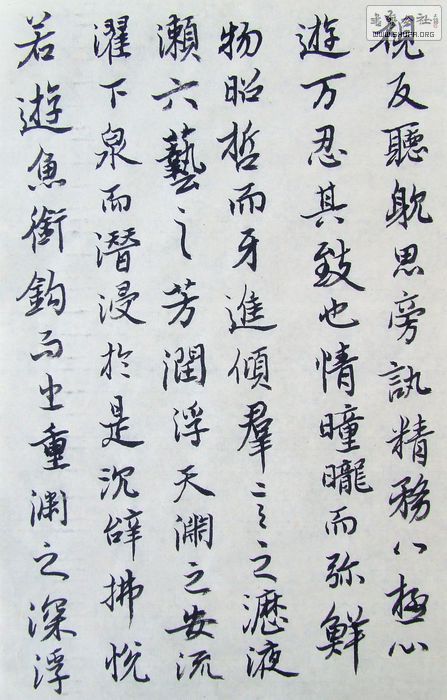 視反聽躭思旁訊精務八極心
遊万忍其致也情曈曨而弥鮮
物昭哲而牙進傾羣言之瀝液
瀬六藝之芳潤浮天淵之安流
濯下泉而潛浸於是沉辞拂悅
若遊魚銜鈎而出重渊之深浮
WWW.SHUFA.ORG